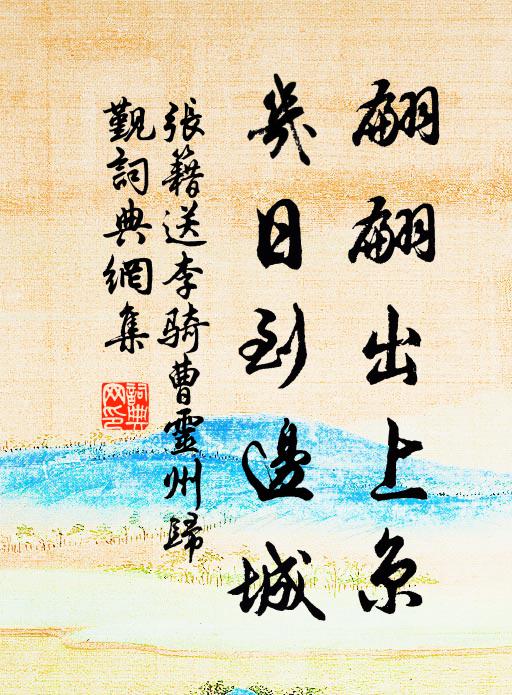 翩翩出上京
幾日到邊城
張籍送李骑曹靈州歸
觐詞典網集
詞典
网印